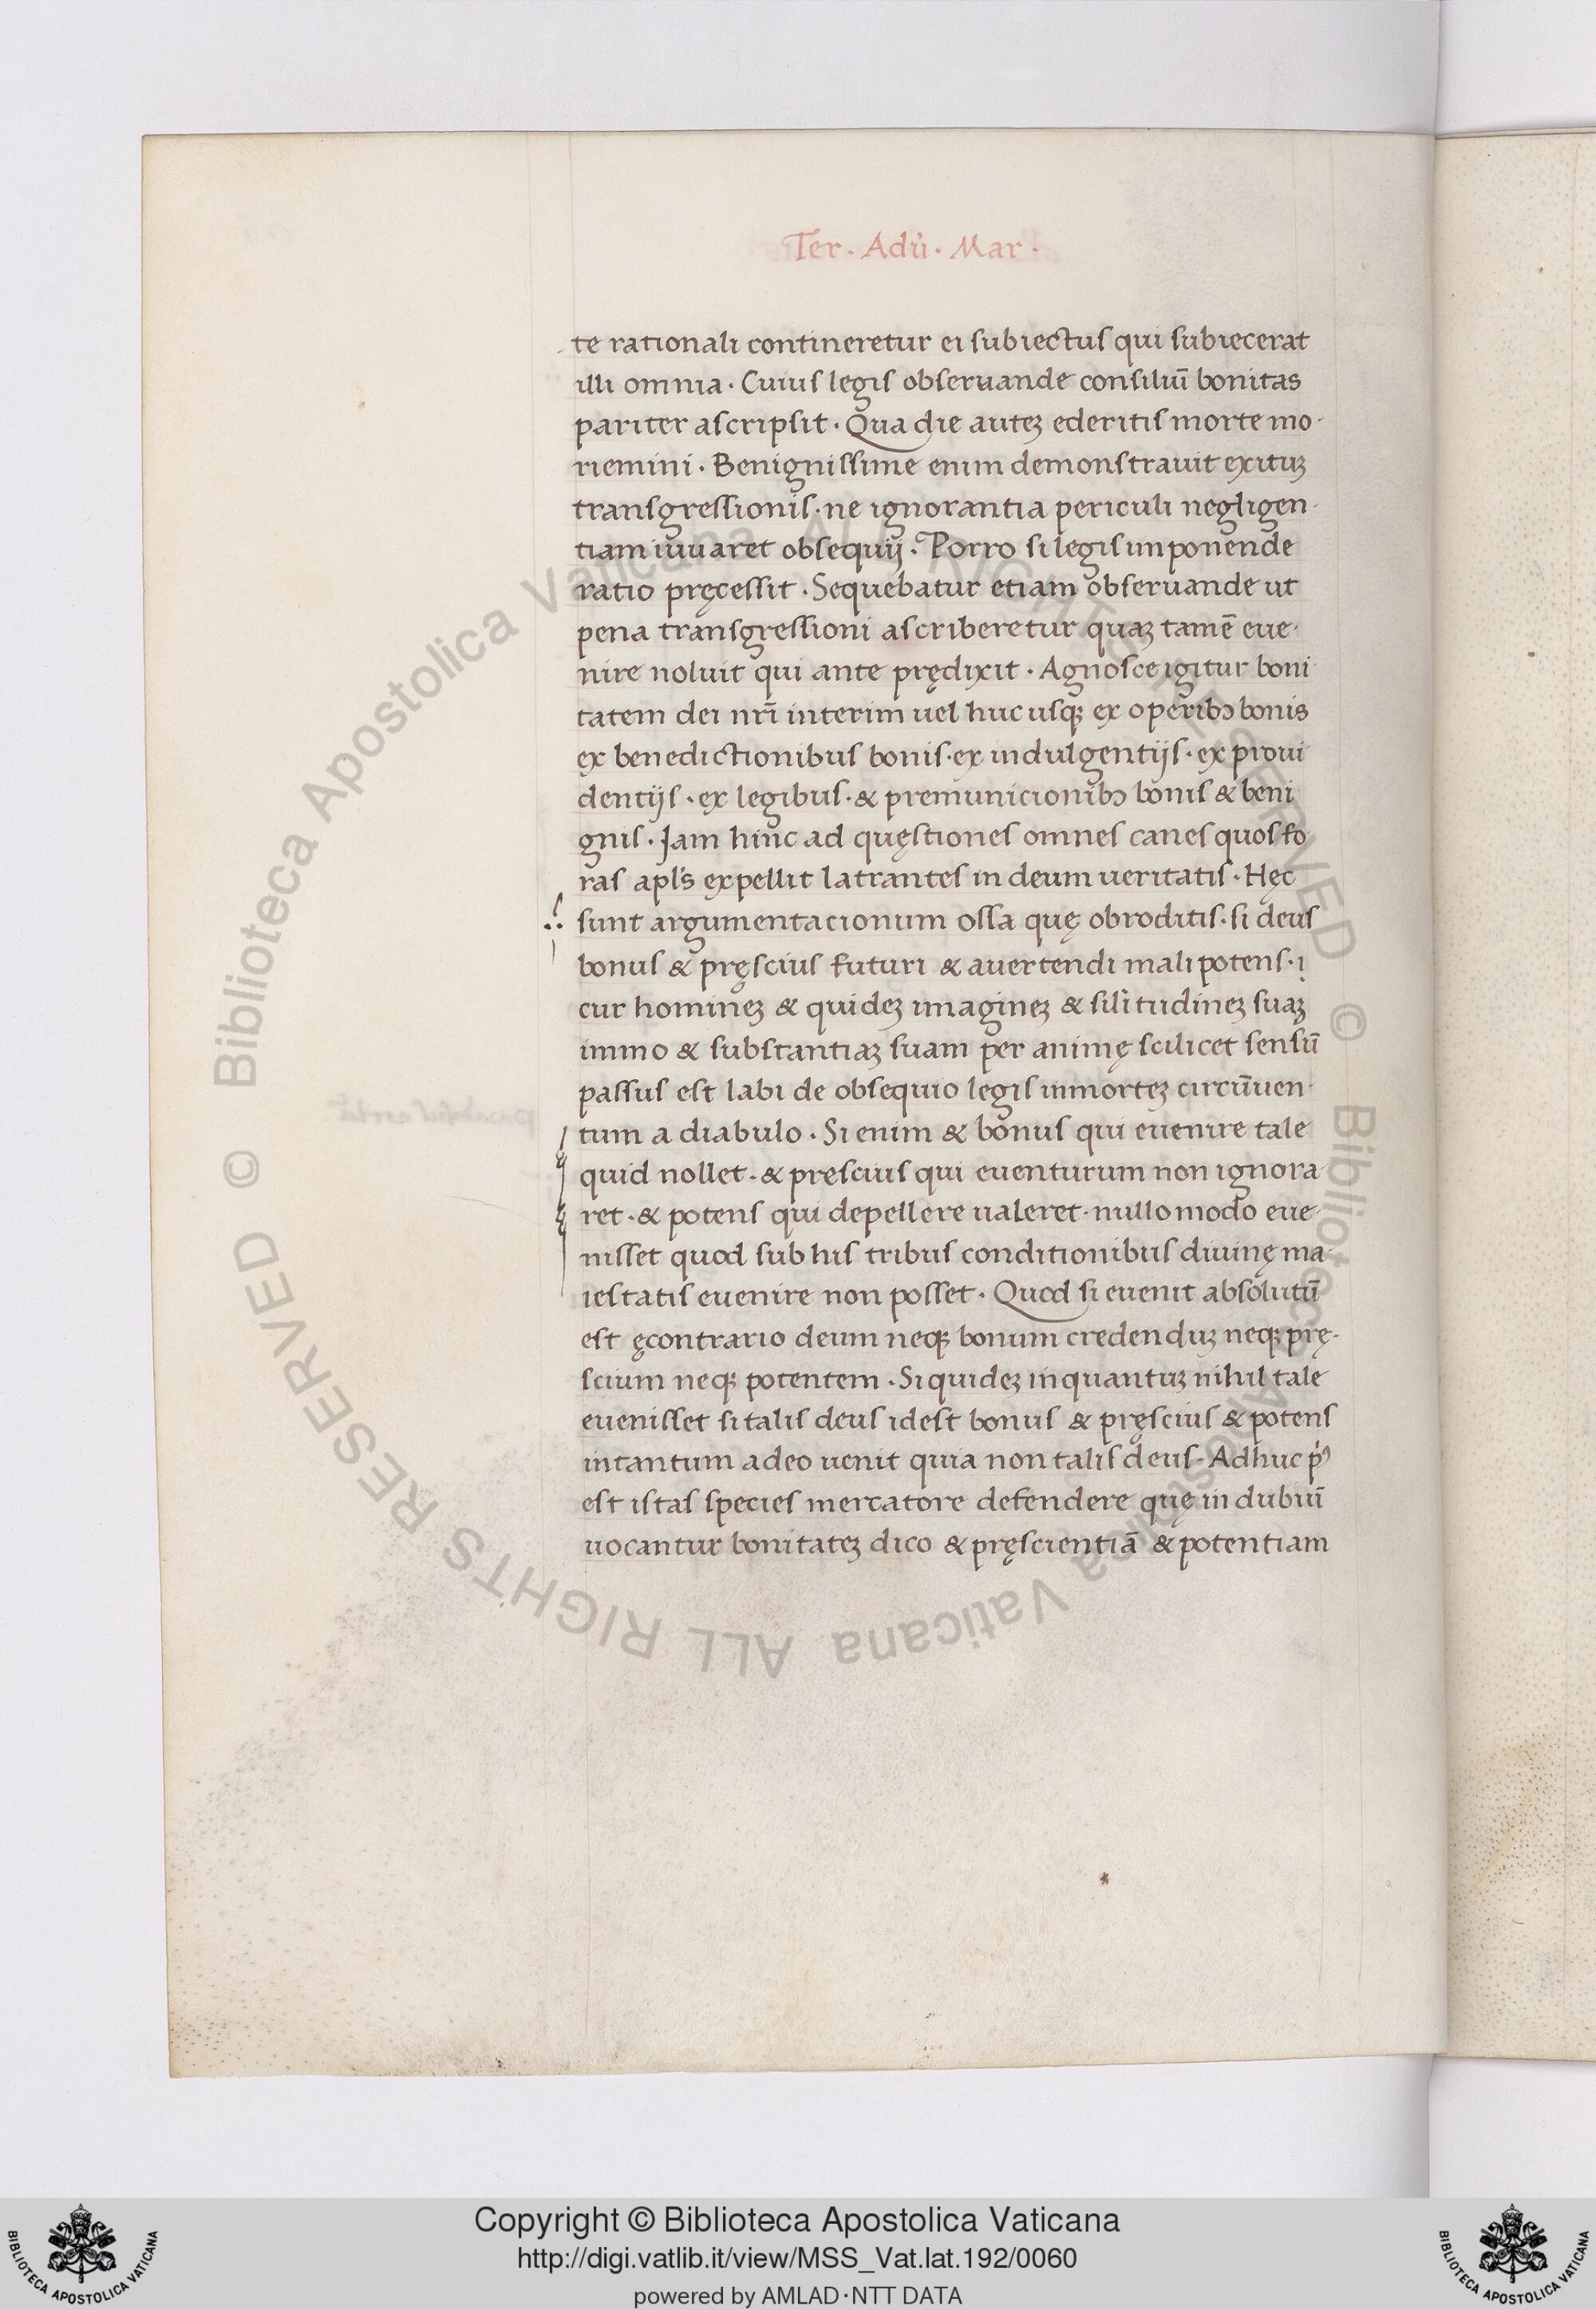 Ter · Adu̾ · Mar ·
te rationali contineretur ei subiectus qui subiecerat
illi omnia · Cuius legis obseruande consiliū bonitas
pariter ascripsit · Qua die auteꝫ ederitis morte mo·
riemini · Benignissime enim demonstrauit exituꝫ
transgressionis · ne ignorantia periculi negligen·
tiam iuuaret obsequij · Porro si legis imponende
ratio pręcessit · Sequebatur etiam obseruande ut
pena transgressioni ascriberetur quaꝫ tamē eue·
nire noluit qui ante prędixit · Agnosce igitur boni·
tatem dei nr̄i interim uel huc usqꝫ ex operibꝰ bonis
ex benedictionibus bonis · ex indulgentijs · ex proui
dentijs · ex legibus · & premunicionibꝰ bonis & beni
gnis · Jam hinc ad quęstiones omnes canes quos fo
ras apl's expellit latrantes in deum ueritatis · Hęc
sunt argumentacionum ossa quę obroditis · si deus
bonus & pręscius futuri & auertendi mali potens ·
cur homineꝫ & quideꝫ imagineꝫ & sili̾tudineꝫ suaꝫ
immo & substantiaꝫ suam per animę scilicet sensū
passus est labi de obsequio legis in morteꝫ circūuen·
tum a diabulo · Si enim & bonus qui euenire tale
quid nollet · & prescius qui euenturum non ignora
ret · & potens qui depellere ualeret · nullo modo eue·
nisset quod sub his tribus conditionibus diuinę ma
iestatis euenire non posset · Quod si euenit absolutū
est ęcontrario deum neqꝫ bonum credenduꝫ neqꝫ prę·
scium neqꝫ potentem · Siquideꝫ inquantuꝫ nihil tale
euenisset si talis deus idest bonus & pręscius & potens
intantum adeo uenit quia non talis deus · Adhuc
est istas species mercatore defendere quę in dubiū
uocantur bonitateꝫ dico & pręscientiā & potentiam
Copyright © Biblioteca Apostolica Vaticana
http://digi.vatlib.it/view/MSS_Vat.lat.192/0060
powered by AMLAD·NTT DATA
BIBLIOTECA APOSTOLICA VATICANA
BIBLIOTECA APOSTOLICA VATICANA
© Biblioteca Apostolica Vaticana ALL RIGHTS RESERVED
© Biblioteca Apostolica Vaticana ALL RIGHTS RESERVED